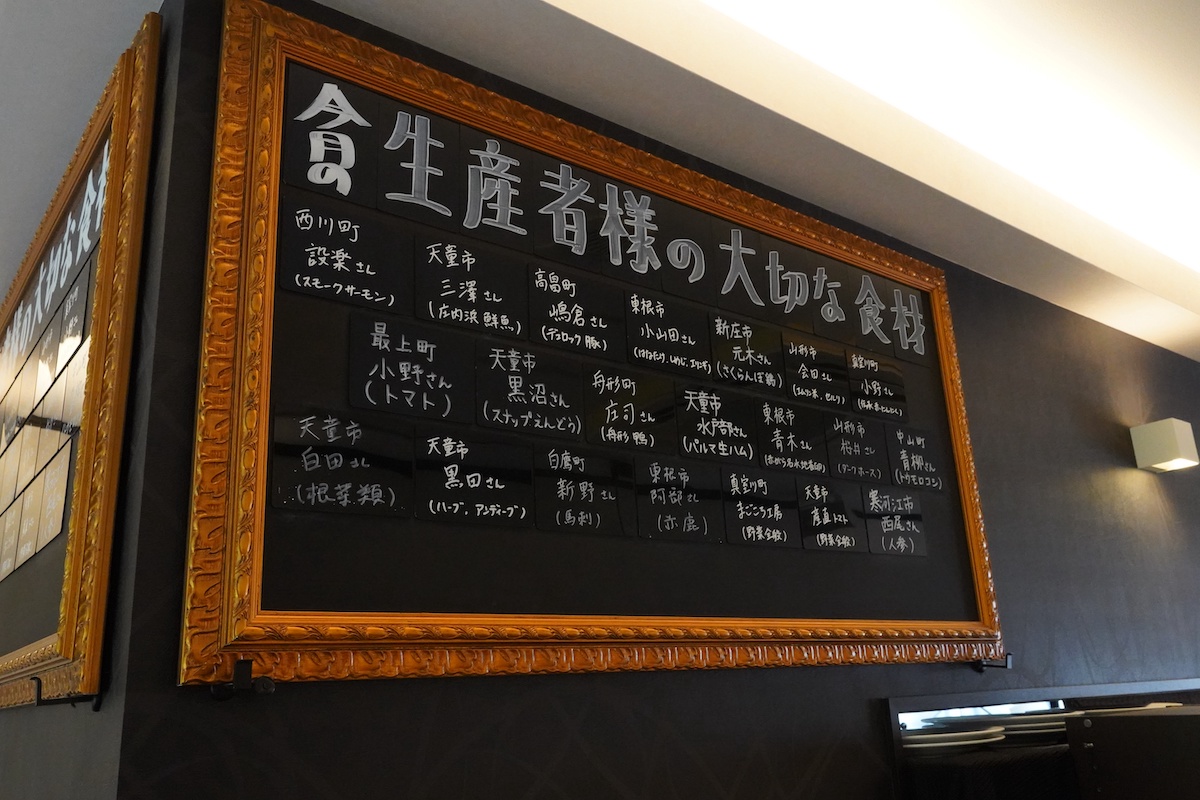 今月の 生産者様の大切な食材
西川町
設楽さん
(スモークサーモン)
天童市
三澤さん
(庄内浜 鮮魚)
高畠町
嶋倉さん
(デュロック豚)
東根市
小山田さん
新庄市
元木さん
(さくらんぼ鶏)
山形市
会田さん
真室川町
小野さん
最上町
小野さん
(トマト)
天童市
黒沼さん
(スナップえんどう)
舟形町
庄司さん
(舟形 鴨)
天童市
水戸部さん
(パルマ生ハム)
東根市
青木さん
山形市
桜井さん
(ダークホース)
中山町
青柳さん
(トウモロコシ)
天童市
白田さん
(根菜類)
天童市
黒田さん
(ハーブ、アンディーブ)
白鷹町
新野さん
(馬刺)
東根市
阿部さん
(赤鹿)
真室川町
まごころ工房
(野菜全般)
天童市
産直トマト
(野菜全般)
寒河江市
西尾さん
(人参)